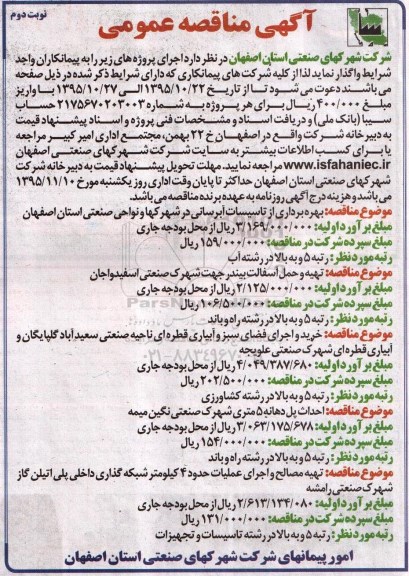 نوبت دوم
آگهی مناقصه عمومی
شرکت شهرکهای صنعتی استان اصفهان در نظر دارد اجرای پروژه های زیر را به پیمانکاران واجد
شرایط واگذار نماید لذا از کلیه شرکت های پیمانکاری که دارای شرایط ذکر شده در ذیل صفحه
می باشند دعوت می شود تا از تاریخ ۱۳۹۵/۱۰/۲۲ الی ۱۳۹۵/۱۰/۲۷ با واریز
مبلغ ۴۰۰/۰۰۰ ریال برای هر پروژه به شماره ۲۱۷۵۶۷۰۲۰۳۰۰۳ حساب
سیبا (بانک ملی) و دریافت اسناد و مشخصات فنی پروژه و اسناد پیشنهاد قیمت
به دبیرخانه شرکت واقع در اصفهان خ ۲۲ بهمن، مجتمع اداری امیر کبیر مراجعه
یا برای کسب اطلاعات بیشتر به سایت شرکت شهرکهای صنعتی اصفهان
www.isfahaniec.ir مراجعه نمایید. مهلت تحویل پیشنهاد قیمت به دبیرخانه شرکت
شهرکهای صنعتی استان اصفهان حداکثر تا پایان وقت اداری روز یکشنبه مورخ ۱۳۹۵/۱۱/۱۰
می باشد و هزینه درج آگهی روزنامه به عهده برنده مناقصه می باشد.
موضوع مناقصه: بهره برداری از تاسیسات آبرسانی در شهرکها و نواحی صنعتی استان اصفهان
مبلغ برآورد اولیه: ۳/۱۶۹/۰۰۰/۰۰۰ ریال از محل بودجه جاری
مبلغ سپرده شرکت در مناقصه: ۱۵۹/۰۰۰/۰۰۰ ریال
رتبه مورد نظر: رتبه ۵ و به بالا در رشته آب
موضوع مناقصه: تهیه و حمل آسفالت بیندر جهت شهرک صنعتی اسفیدواجان
مبلغ برآورد اولیه: ۲/۱۲۵/۰۰۰/۰۰۰ ریال از محل بودجه جاری
مبلغ سپرده شرکت در مناقصه: ۱۰۶/۵۰۰/۰۰۰ ریال
رتبه مورد نظر: رتبه ۵ و به بالا در رشته راه و باند
موضوع مناقصه: خرید و اجرای فضای سبز و آبیاری قطره ای ناحیه صنعتی سعید آباد گلپایگان و
آبیاری قطره ای شهرک صنعتی علویجه
مبلغ برآورد اولیه: ۴/۰۴۹/۳۸۷/۶۸۰ ریال از محل بودجه جاری
مبلغ سپرده شرکت در مناقصه: ۲۰۲/۵۰۰/۰۰۰ ریال
رتبه مورد نظر: رتبه ۵ و به بالا در رشته کشاورزی
موضوع مناقصه: احداث پل دهانه ۵ متری شهرک صنعتی نگین میمه
مبلغ برآورد اولیه: ۳/۰۶۳/۱۷۵/۶۷۸ ریال از محل بودجه جاری
مبلغ سپرده شرکت در مناقصه: ۱۵۴/۰۰۰/۰۰۰ ریال
رتبه مورد نظر: رتبه ۵ و به بالا در رشته راه و باند
موضوع مناقصه: تهیه مصالح و اجرای عملیات حدود ۴ کیلومتر شبکه گذاری داخلی پلی اتیلن گاز
شهرک صنعتی رامشه
مبلغ برآورد اولیه: ۲/۶۱۳/۱۳۴/۰۸۰ ریال از محل بودجه جاری
مبلغ سپرده شرکت در مناقصه: ۱۳۱/۰۰۰/۰۰۰ ریال
رتبه مورد نظر: رتبه ۵ و به بالا در رشته تاسیسات و تجهیزات
امور پیمانهای شرکت شهرکهای صنعتی استان اصفهان